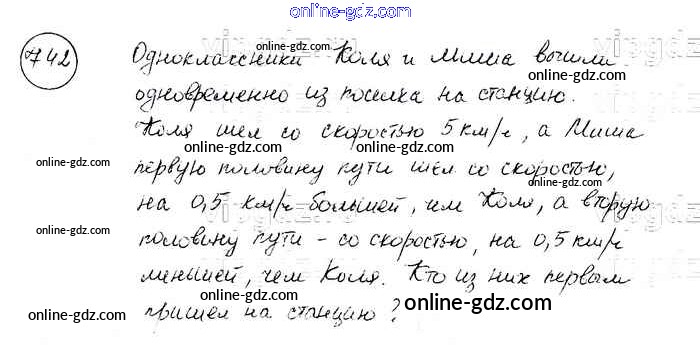 online-gdz.com
742
Одноклассники Коля и Миша вышли
одновременно из поселка на станцию.
Коля шел со скоростью 5 км/ч, а Миша
первую половину пути шел со скоростью,
на 0,5 км/ч большей, чем Коля, а вторую
половину пути – со скоростью, на 0,5 км/ч
меньшей, чем Коля. Кто из них первым
пришел на станцию?
online-gdz.com
online-gdz.com
online-gdz.com
online-gdz.com
online-gdz.com
online-gdz.com
online-gdz.com
online-gdz.com
online-gdz.com
online-gdz.com
online-gdz.com
online-gdz.com